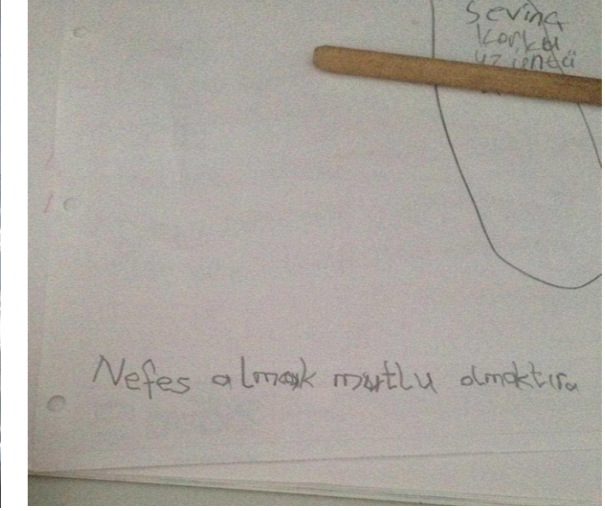 Sevinç
korku
üzüntü
Nefes almak mutlu olmaktır